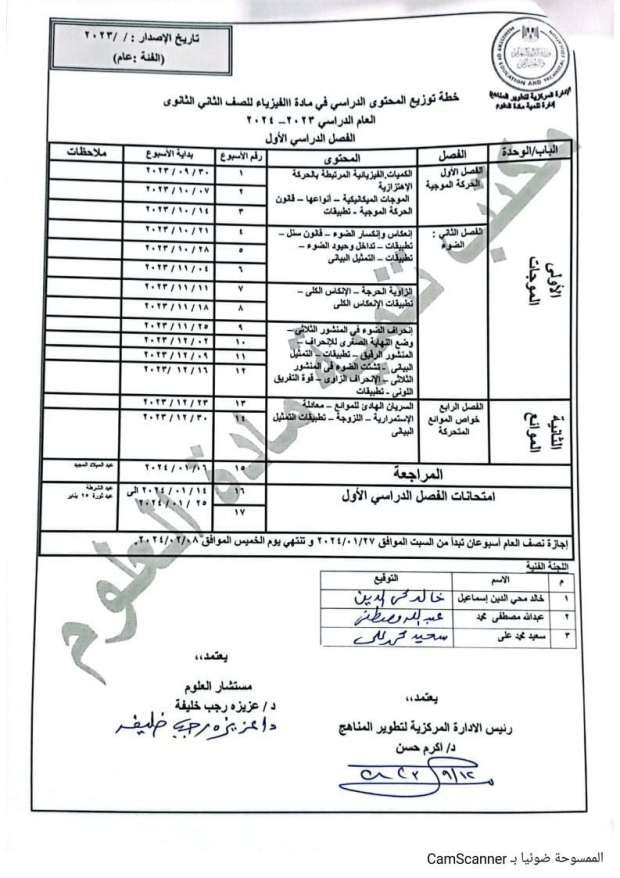 تاريخ الإصدار: / / ٢٠٢٣
(الفئة :عام)
الإدارة المركزية لتطوير المناهج
إدارة تنمية مادة العلوم
خطة توزيع المحتوى الدراسي في مادة االفيزياء للصف الثاني الثانوى
العام الدراسي ٢٠٢٣ – ٢٠٢٤
الفصل الدراسي الأول
الباب/الوحدة الفصل المحتوى رقم الأسبوع بداية الأسبوع ملاحظات
الأولى
الموجات
الفصل الأول
الحركة الموجية
الكميات الفيزيائية المرتبطة بالحركة
الإهتزازية
الموجات الميكانيكية – أنواعها – قانون
الحركة الموجية - تطبيقات
١ ٢٠٢٣ / ٠٩ / ٣٠
٢ ٢٠٢٣ / ١٠ / ٠٧
٣ ٢٠٢٣ / ١٠ / ١٤
الفصل الثاني :
الضوء
إنعكاس وإنكسار الضوء – قانون سنل –
تطبيقات – تداخل وحيود الضوء –
تطبيقات – التمثيل البيانى
٤ ٢٠٢٣ / ١٠ / ٢١
٥ ٢٠٢٣ / ١٠ / ٢٨
٦ ٢٠٢٣ / ١١ / ٠٤
الزاوية الحرجة – الإنكاس الكلى –
تطبيقات الإنعكاس الكلى
٧ ٢٠٢٣ / ١١ / ١١
٨ ٢٠٢٣ / ١١ / ١٨
إنحراف الضوء في المنشور الثلاثي –
وضع النهاية الصغرى للإنحراف –
المنشور الرقيق – تطبيقات – التمثيل
البيانى – تشتت الضوء في المنشور
الثلاثي – الإنحراف الزاوى – قوة التفريق
اللونى - تطبيقات
٩ ٢٠٢٣ / ١١ / ٢٥
١٠ ٢٠٢٣ / ١٢ / ٠٢
١١ ٢٠٢٣ / ١٢ / ٠٩
١٢ ٢٠٢٣ / ١٢ / ١٦
الثانية
الموائع
الفصل الرابع
خواص الموائع
المتحركة
السريان الهادئ للموائع – معادلة
الإستمرارية – اللزوجة – تطبيقات التمثيل
البيانى
١٣ ٢٠٢٣ / ١٢ / ٢٣
١٤ ٢٠٢٣ / ١٢ / ٣٠
المراجعة ١٥ ٢٠٢٤/٠١/٠٦ عيد الميلاد المجيد
امتحانات الفصل الدراسي الأول
١٦
١٧
٢٠٢٤ /٠١ / ١٤ الى
٢٠٢٤ /٠١ / ٢٥
عيد الشرطة
عيد ثورة ٢٥ يناير
إجازة نصف العام أسبوعان تبدأ من السبت الموافق ٢٠٢٤/٠١/٢٧ و تنتهي يوم الخميس الموافق ٢٠٢٤/٠٢/٠٨.
اللجنة الفنية
م الاسم التوقيع
١ خالد محي الدين إسماعيل خالد محي الدين
٢ عبدالله مصطفى محمد عبدالله مصطفى
٣ سعيد محمد على سعيد محمد على
يعتمد،،
مستشار العلوم
د/ عزيزه رجب خليفة
د/ عزيزه رجب خليفه
يعتمد،،
رئيس الادارة المركزية لتطوير المناهج
د/ اكرم حسن
مكتب تنمية مادة العلوم
الممسوحة ضوئيا بـ CamScanner